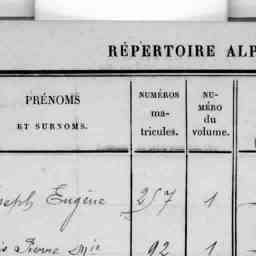 RÉPERTOIRE ALP
PRÉNOMS
ET SURNOMS.
NUMÉROS
ma-
tricules.
NU-
MÉRO
du
volume.
Eugène 257 1
Pierre Mie 92 1